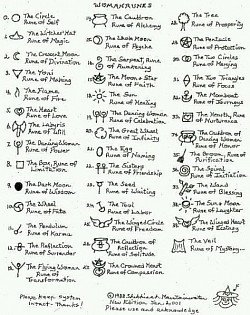 WOMANRUNES
0. The Circle
Rune of Self
1. The Witches' Hat
Rune of Magic
2. The Crescent Moon
Rune of Divination
3. The Yoni
Rune of Making
4. The Flame
Rune of Fire
5. The Heart
Rune of Love
6. The Labyris
Rune of Will
7. The Dancing Woman
Rune of Power
8. The Box, Rune of
Limitation
9. The Dark Moon
Rune of Wisdom
10. The Wheel
Rune of Fate
11. The Pendulum
Rune of Karma
12. The Reflection
Rune of Surrender
13. The Flying Woman
Rune of
Transformation
14. The Cauldron
Rune of Alchemy
15. The Whole Moon
Rune of Psyche
16. The Serpent, Rune of
Awakening
17. The Moon & Star
Rune of Faith
18. The Sun
Rune of Healing
19. The Dancing Women
Rune of Celebration
20. The Great Wheel
Rune of Infinity
21. The Egg
Rune of Naming
22. The Sisters
Rune of Friendship
23. The Seed
Rune of Waiting
24. The Tool
Rune of Labor
25. The Winged Circle
Rune of Freedom
26. The Cauldron of
Reflection
Rune of Solitude
27. The Crowned Heart
Rune of Compassion
28. The Tree
Rune of Prosperity
29. The Pentacle
Rune of Protection
30. The Two Circles
Rune of Merging
31. The Two Triangles
Rune of Focus
32. The Moonboat
Rune of Journeys
33. The Hearth, Rune
of Nurturance
34. The Cauldron of
Dancing Women
Rune of Honor
35. The Broom, Rune of
Purification
36. The Spiral
Rune of Initiation
37. The Wand
Rune of Blessing
38. The Sun & Moon
Rune of Laughter
39. The Winged Heart
Rune of Ecstasy
The Veil
Rune of Mystery...
Please Keep System
Intact - Thanks!
© 1988 Shekhinah Mountainwater
New Edition, Jan. 2001
Please use and acknowledge